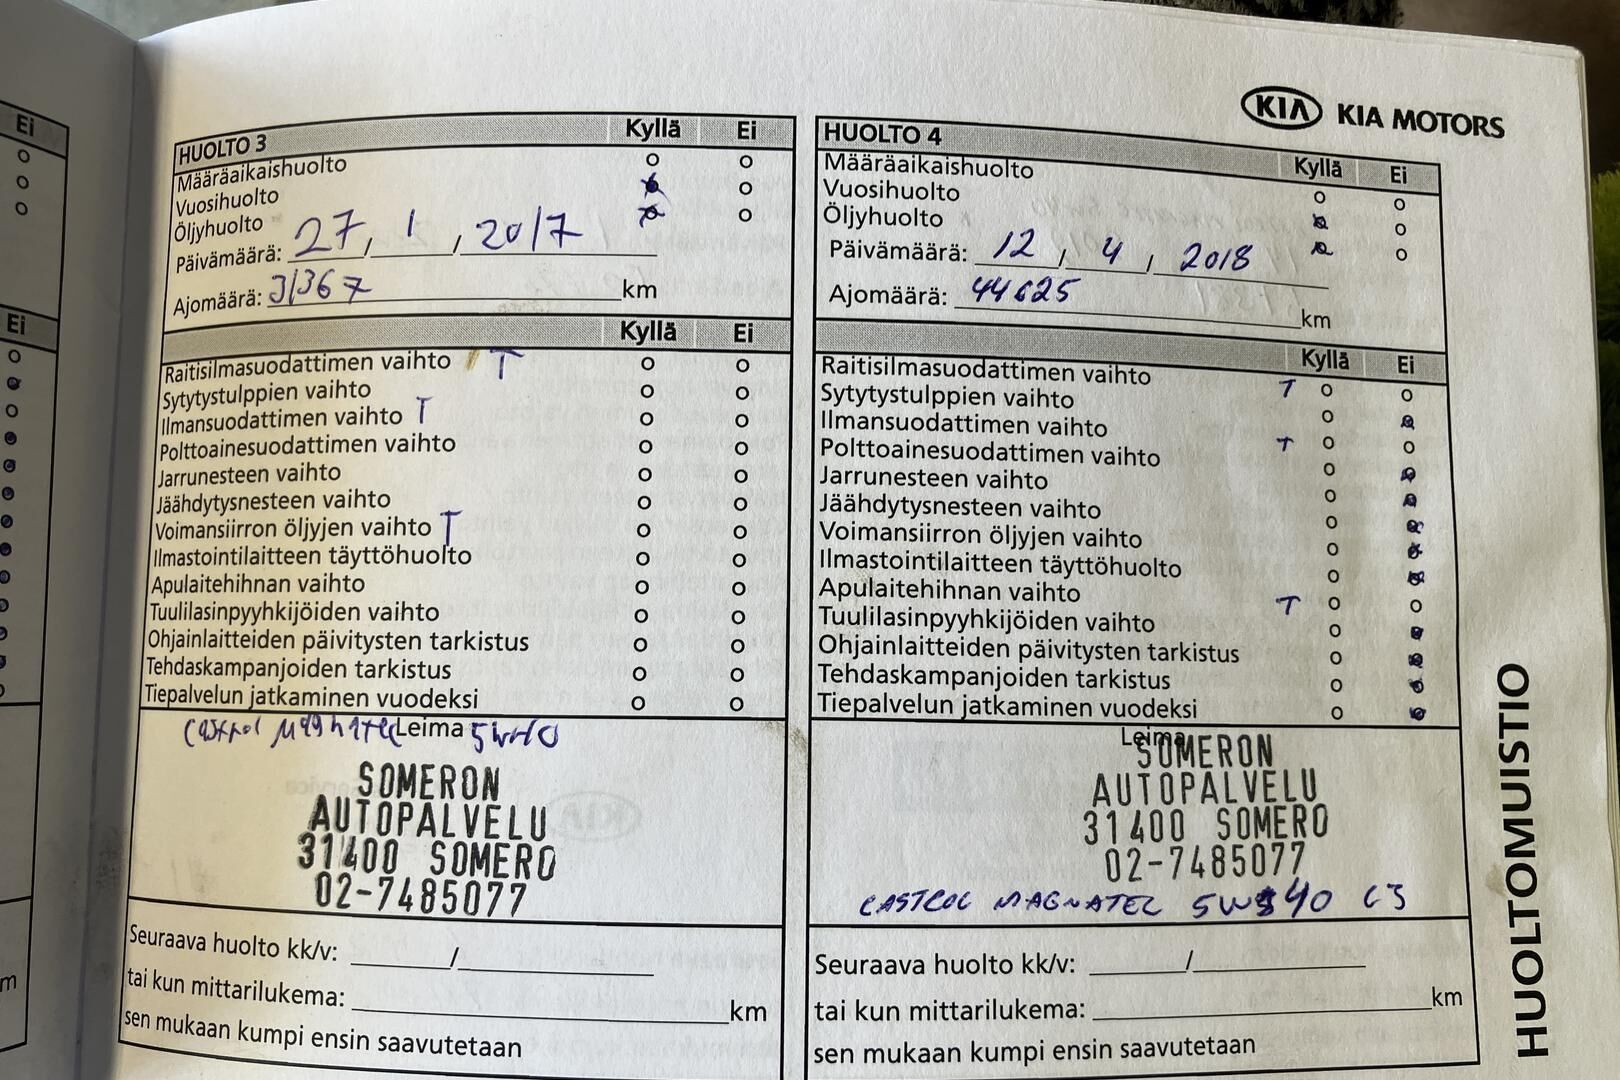 KIA KIA MOTORS
Ei
Ei
m
HUOLTO 3 Kyllä Ei
Määräaikaishuolto
Vuosihuolto
Öljyhuolto
Päivämäärä: 27, 1, 2017
Ajomäärä: 31367 km
Kyllä Ei
Raitisilmasuodattimen vaihto T
Sytytystulppien vaihto
Ilmansuodattimen vaihto T
Polttoainesuodattimen vaihto
Jarrunesteen vaihto
Jäähdytysnesteen vaihto
Voimansiirron öljyjen vaihto T
Ilmastointilaitteen täyttöhuolto
Apulaitehihnan vaihto
Tuulilasinpyyhkijöiden vaihto
Ohjainlaitteiden päivitysten tarkistus
Tehdaskampanjoiden tarkistus
Tiepalvelun jatkaminen vuodeksi
Castrol Magnatec Leima 5W40
SOMERON
AUTOPALVELU
31400 SOMERO
02-7485077
Seuraava huolto kk/v: /
tai kun mittarilukema: km
sen mukaan kumpi ensin saavutetaan
HUOLTO 4
Kyllä Ei
Määräaikaishuolto
Vuosihuolto
Öljyhuolto
Päivämäärä: 12, 4, 2018
Ajomäärä: 44625 km
Kyllä Ei
Raitisilmasuodattimen vaihto T
Sytytystulppien vaihto
Ilmansuodattimen vaihto T
Polttoainesuodattimen vaihto
Jarrunesteen vaihto
Jäähdytysnesteen vaihto
Voimansiirron öljyjen vaihto
Ilmastointilaitteen täyttöhuolto
Apulaitehihnan vaihto T
Tuulilasinpyyhkijöiden vaihto
Ohjainlaitteiden päivitysten tarkistus
Tehdaskampanjoiden tarkistus
Tiepalvelun jatkaminen vuodeksi
Leima
SOMERON
AUTOPALVELU
31400 SOMERO
02-7485077
CASTROL MAGNATEC 5W40 C3
Seuraava huolto kk/v: /
tai kun mittarilukema: km
sen mukaan kumpi ensin saavutetaan
HUOLTOMUISTIO